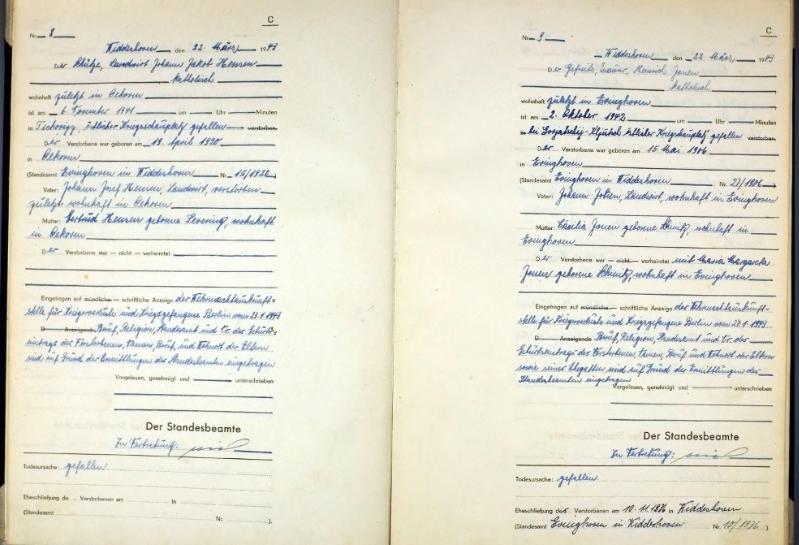 C
Nr. 8
Widdeshoven, den 22. März 1943
Der Schütze, Landwirt Johann Jakob Hensen
katholisch
wohnhaft zuletzt in Oekoven
ist am 6. November 1941 um Uhr Minuten
in östlicher Kriegsschauplatz gefallen verstorben.
Der Verstorbene war geboren am 19. April 1920
in Oekoven
(Standesamt Evinghoven in Widdeshoven Nr. 15/1920)
Vater: Johann Josef Hensen, Landwirt, verstorben
zuletzt wohnhaft in Oekoven
Mutter: Gertrud Hensen geborene Levering, wohnhaft
in Oekoven
Der Verstorbene war — nicht — verheiratet
Eingetragen auf mündliche — schriftliche Anzeige der Wehrmachtauskunft-
stelle für Kriegsverluste und Kriegsgefangene Berlin vom 23.1.1943
D Anzeigende Beruf, Religion, Standesamt und Nr. des Geburts-
eintrags des Verstorbenen, Namen, Beruf und Wohnort der Eltern
sind auf Grund der Ermittlungen des Standesbeamten eingetragen
Vorgelesen, genehmigt und unterschrieben
Der Standesbeamte
In Vertretung:
Todesursache: gefallen
Eheschließung de Verstorbenen am in
(Standesamt Nr. ).
C
Nr. 9
Widdeshoven, den 22. März 1943
Der Gefreite, Heinrich Jonen
katholisch
wohnhaft zuletzt in Evinghoven
ist am 2. Oktober 1942 um Uhr Minuten
in bei östlicher Kriegsschauplatz gefallen verstorben.
Der Verstorbene war geboren am 15. Mai 1906
in Evinghoven
(Standesamt Evinghoven in Widdeshoven Nr. 22/1906)
Vater: Johann Jonen, Landwirt, wohnhaft in Evinghoven
Mutter: Cäcilia Jonen geborene Schmitz, wohnhaft in
Evinghoven
Der Verstorbene war — nicht — verheiratet mit Maria Margareta
Jonen geborene Schmitz, wohnhaft in Evinghoven
Eingetragen auf mündliche — schriftliche Anzeige der Wehrmachtauskunft-
stelle für Kriegsverluste und Kriegsgefangene Berlin vom 27.1.1943
D Anzeigende Beruf, Religion, Standesamt und Nr. des
Geburtseintrags des Verstorbenen, Namen, Beruf und Wohnort der Eltern
sowie seiner Ehegattin sind auf Grund der Ermittlungen des
Standesbeamten eingetragen
Vorgelesen, genehmigt und unterschrieben
Der Standesbeamte
In Vertretung:
Todesursache: gefallen
Eheschließung des Verstorbenen am 10.11.1936 in Widdeshoven
(Standesamt Evinghoven in Widdeshoven Nr. 10/1936).